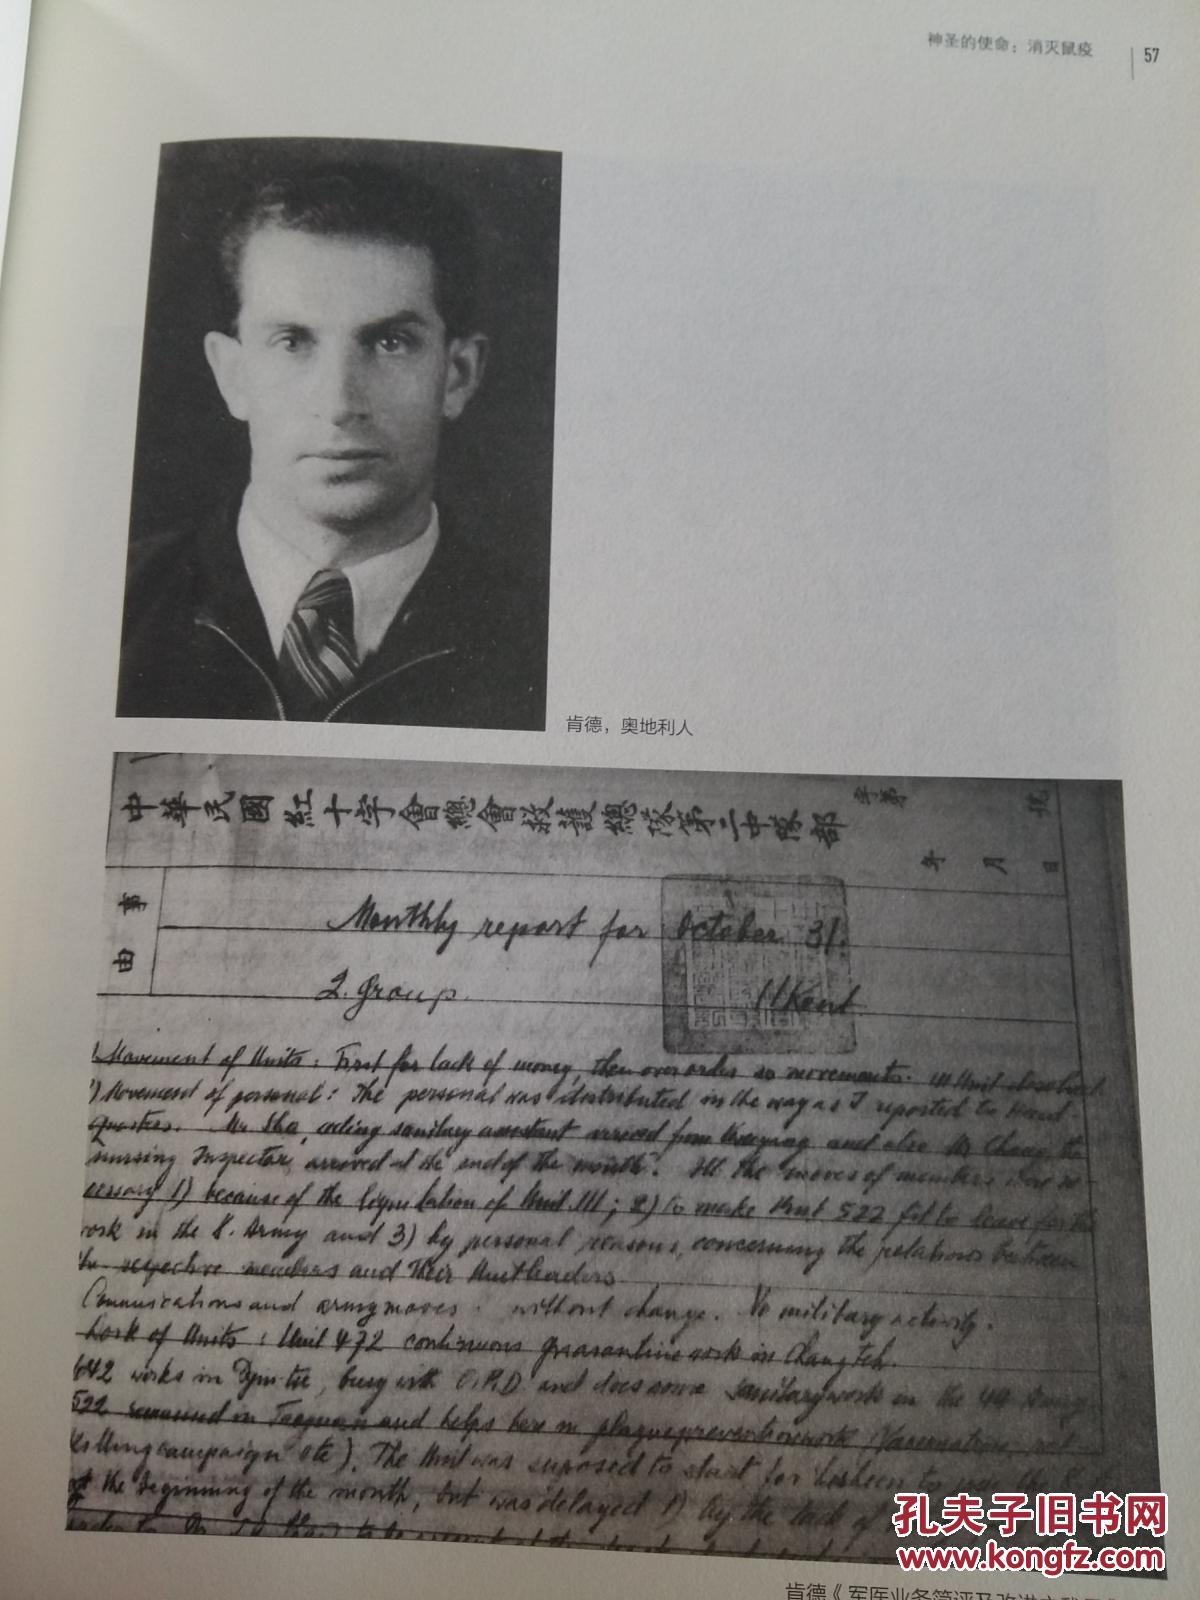 神圣的使命：消灭鼠疫
57
肯德，奥地利人
中華民國紅十字會總會救護總隊第二中隊部
字第 號
年 月 日
事由
Monthly report for October 31.
2. Group. H Kent
Movement of Units: First for lack of money, then over order no movements. III Unit dissolved
Movement of personal: The personal was distributed in the way as I reported to Head-
quarters. Mr Sha, acting sanitary assistant arrived from Kweiyang and also Mr Chang, the
nursing Inspector, arrived at the end of the month. All the moves of members were ne-
cessary 1) because of the liquidation of Unit III; 2) to make Unit 522 fit to leave for the
work in the 8. Army and 3) by personal reasons, concerning the relations between
the respective members and their Unitleaders.
Comunications and army moves: without change. No military activity.
Work of Units: Unit 472 continuous quarantine work in Changteh.
642 works in busy with O.P.D. and does some sanitary work in the 44 Army
522 remained in Taoyuan and helps here in plague prevention work (Vaccination, rat
killing campaign etc). The Unit was suposed to start for
at the beginning of the month, but was delayed 1) by the lack of
孔夫子旧书网
www.kongfz.com
肯德《军医业务简评及改进